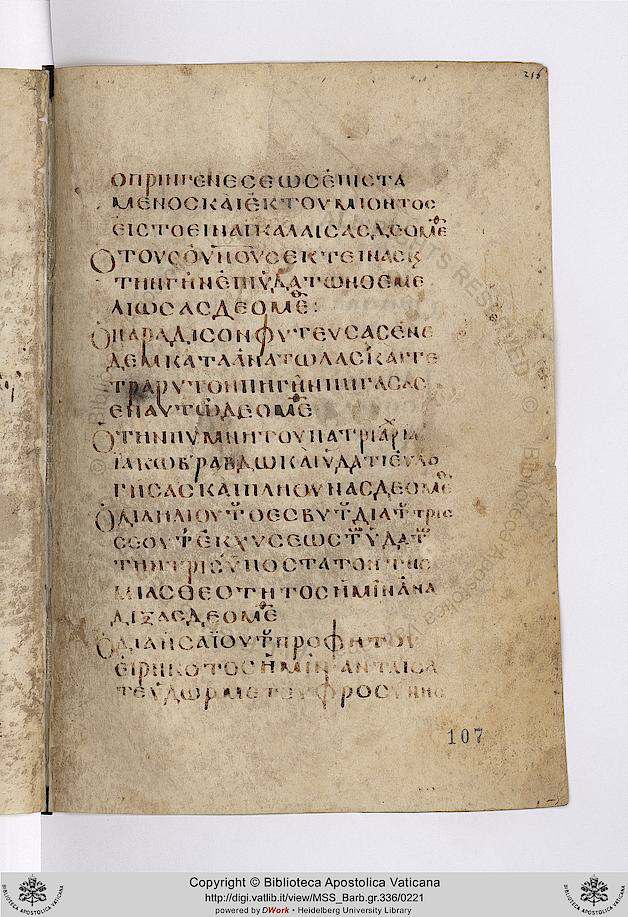 216
ΟΠΡΙΝΓΕΝΕΣΕΩΣἘΠΙΣΤΑ
ΜΕΝΟΣΚΑΙἘΚΤΟΥΜΙΟΝΤΟΣ
ΕΙΣΤΟΕΙΝΑΙΚΑΛΛΙΣΑΣΔΕΟΜΕ
ΟΤΟΥΣΟΥΝΟΥΣΕΚΤΕΙΝΑΣΚ
ΤΗΝΓΗΝἘΠΙΥΔΑΤΩΝΘΕΜΕ
ΛΙΩΣΑΣΔΕΟΜΕ:
ΟΠΑΡΑΔΙΣΟΝΦΥΤΕΥΣΑΣΕΝΕ
ΔΕΜΚΑΤΑΑΝΑΤΩΛΑΣΚΑΙΤΕ
ΤΡΑΡΥΤΟΝΠΗΓΗΝΠΗΓΑΣΑΣ
ΕΝΑΥΤΩΔΕΟΜΕ
ΟΤΗΝΠΥΜΝΗΤΟΥΠΑΤΡΙΑΡΙΑ
ΙΑΚΩΒΡΑΒΔΩΚΑΙΥΔΑΤΙΕΥΛΟ
ΓΗΣΑΣΚΑΙΠΛΗΟΥΝΑΣΔΕΟΜΕ
ΟΔΙΑΗΛΙΟΥΤΟΥΘΕΣΒΥΤΔΙΑΤΤΡΙΣ
ΣΕΟΥΤἘΚΧΥΣΕΩΣΤΥΔΑΤ
ΤΗΝΤΡΙΣΥΠΟΣΤΑΤΟΝΤΗΣ
ΜΙΑΣΘΕΟΤΗΤΟΣΗΜΙΝΑΝΑ
ΔΙΞΑΣΔΕΟΜΕ
ΟΔΙΑΗΣΑΪΟΥΤΠΡΟΦΗΤΟΥ
ΕΙΡΗΚΟΤΟΣΗΜΙΝΑΝΤΛΙΣΑ
ΤΕΥΔΩΡΜΕΤΕΥΦΡΟΣΥΝΗΣ
107
Copyright © Biblioteca Apostolica Vaticana
http://digi.vatlib.it/view/MSS_Barb.gr.336/0221
powered by DWork • Heidelberg University Library